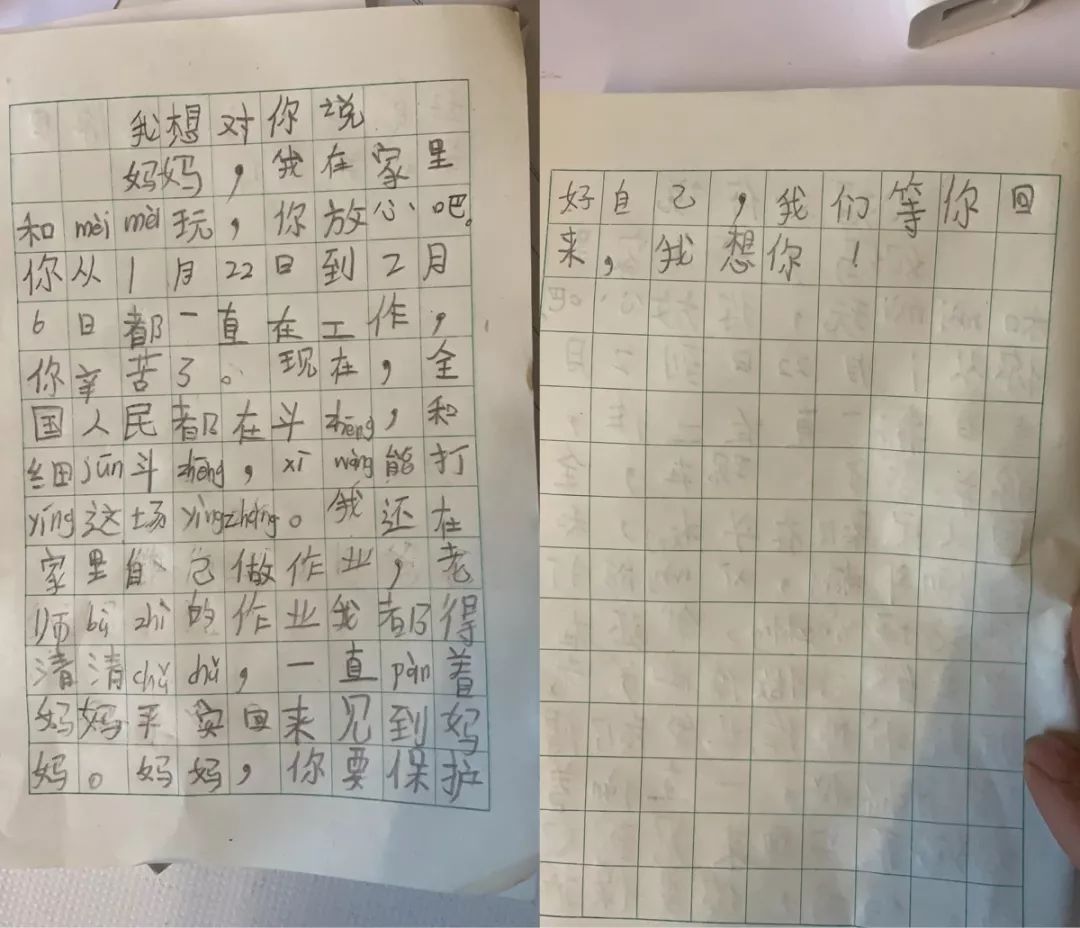 我想对你说
妈妈，我在家里
和mèi mèi玩，你放心吧。
你从1月22日到2月
6日都一直在工作，
你辛苦了。现在，全
国人民都在斗zhēng，和
细jūn斗zhēng，xī wàng能打
yíng这场yíngzhàng。我还在
家里自己做作业，老
师bù zhì的作业我都得
清清chǔ chǔ，一直pàn着
妈妈平实回来见到妈
妈。妈妈，你要保护
好自己，我们等你回
来，我想你！